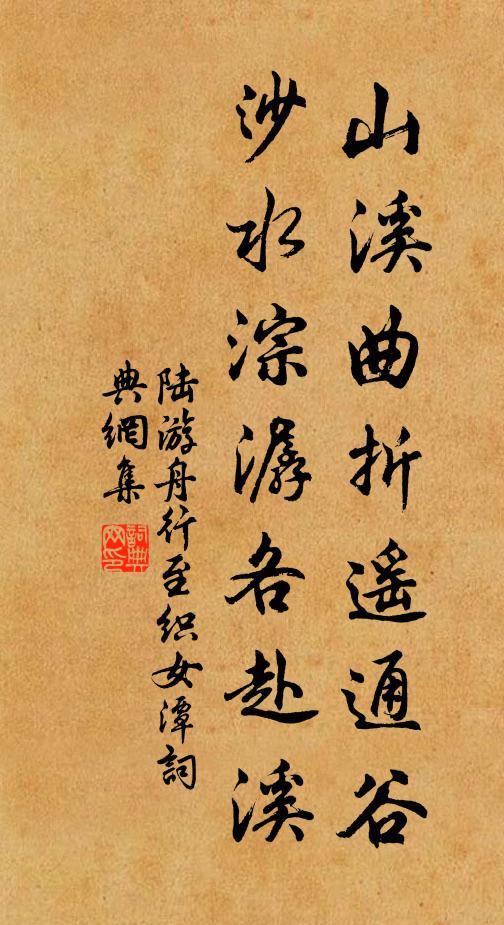 山溪曲折遥通谷
沙水淙潺各赴溪
陆游舟行至织女潭詞
典網集
詞典
网印